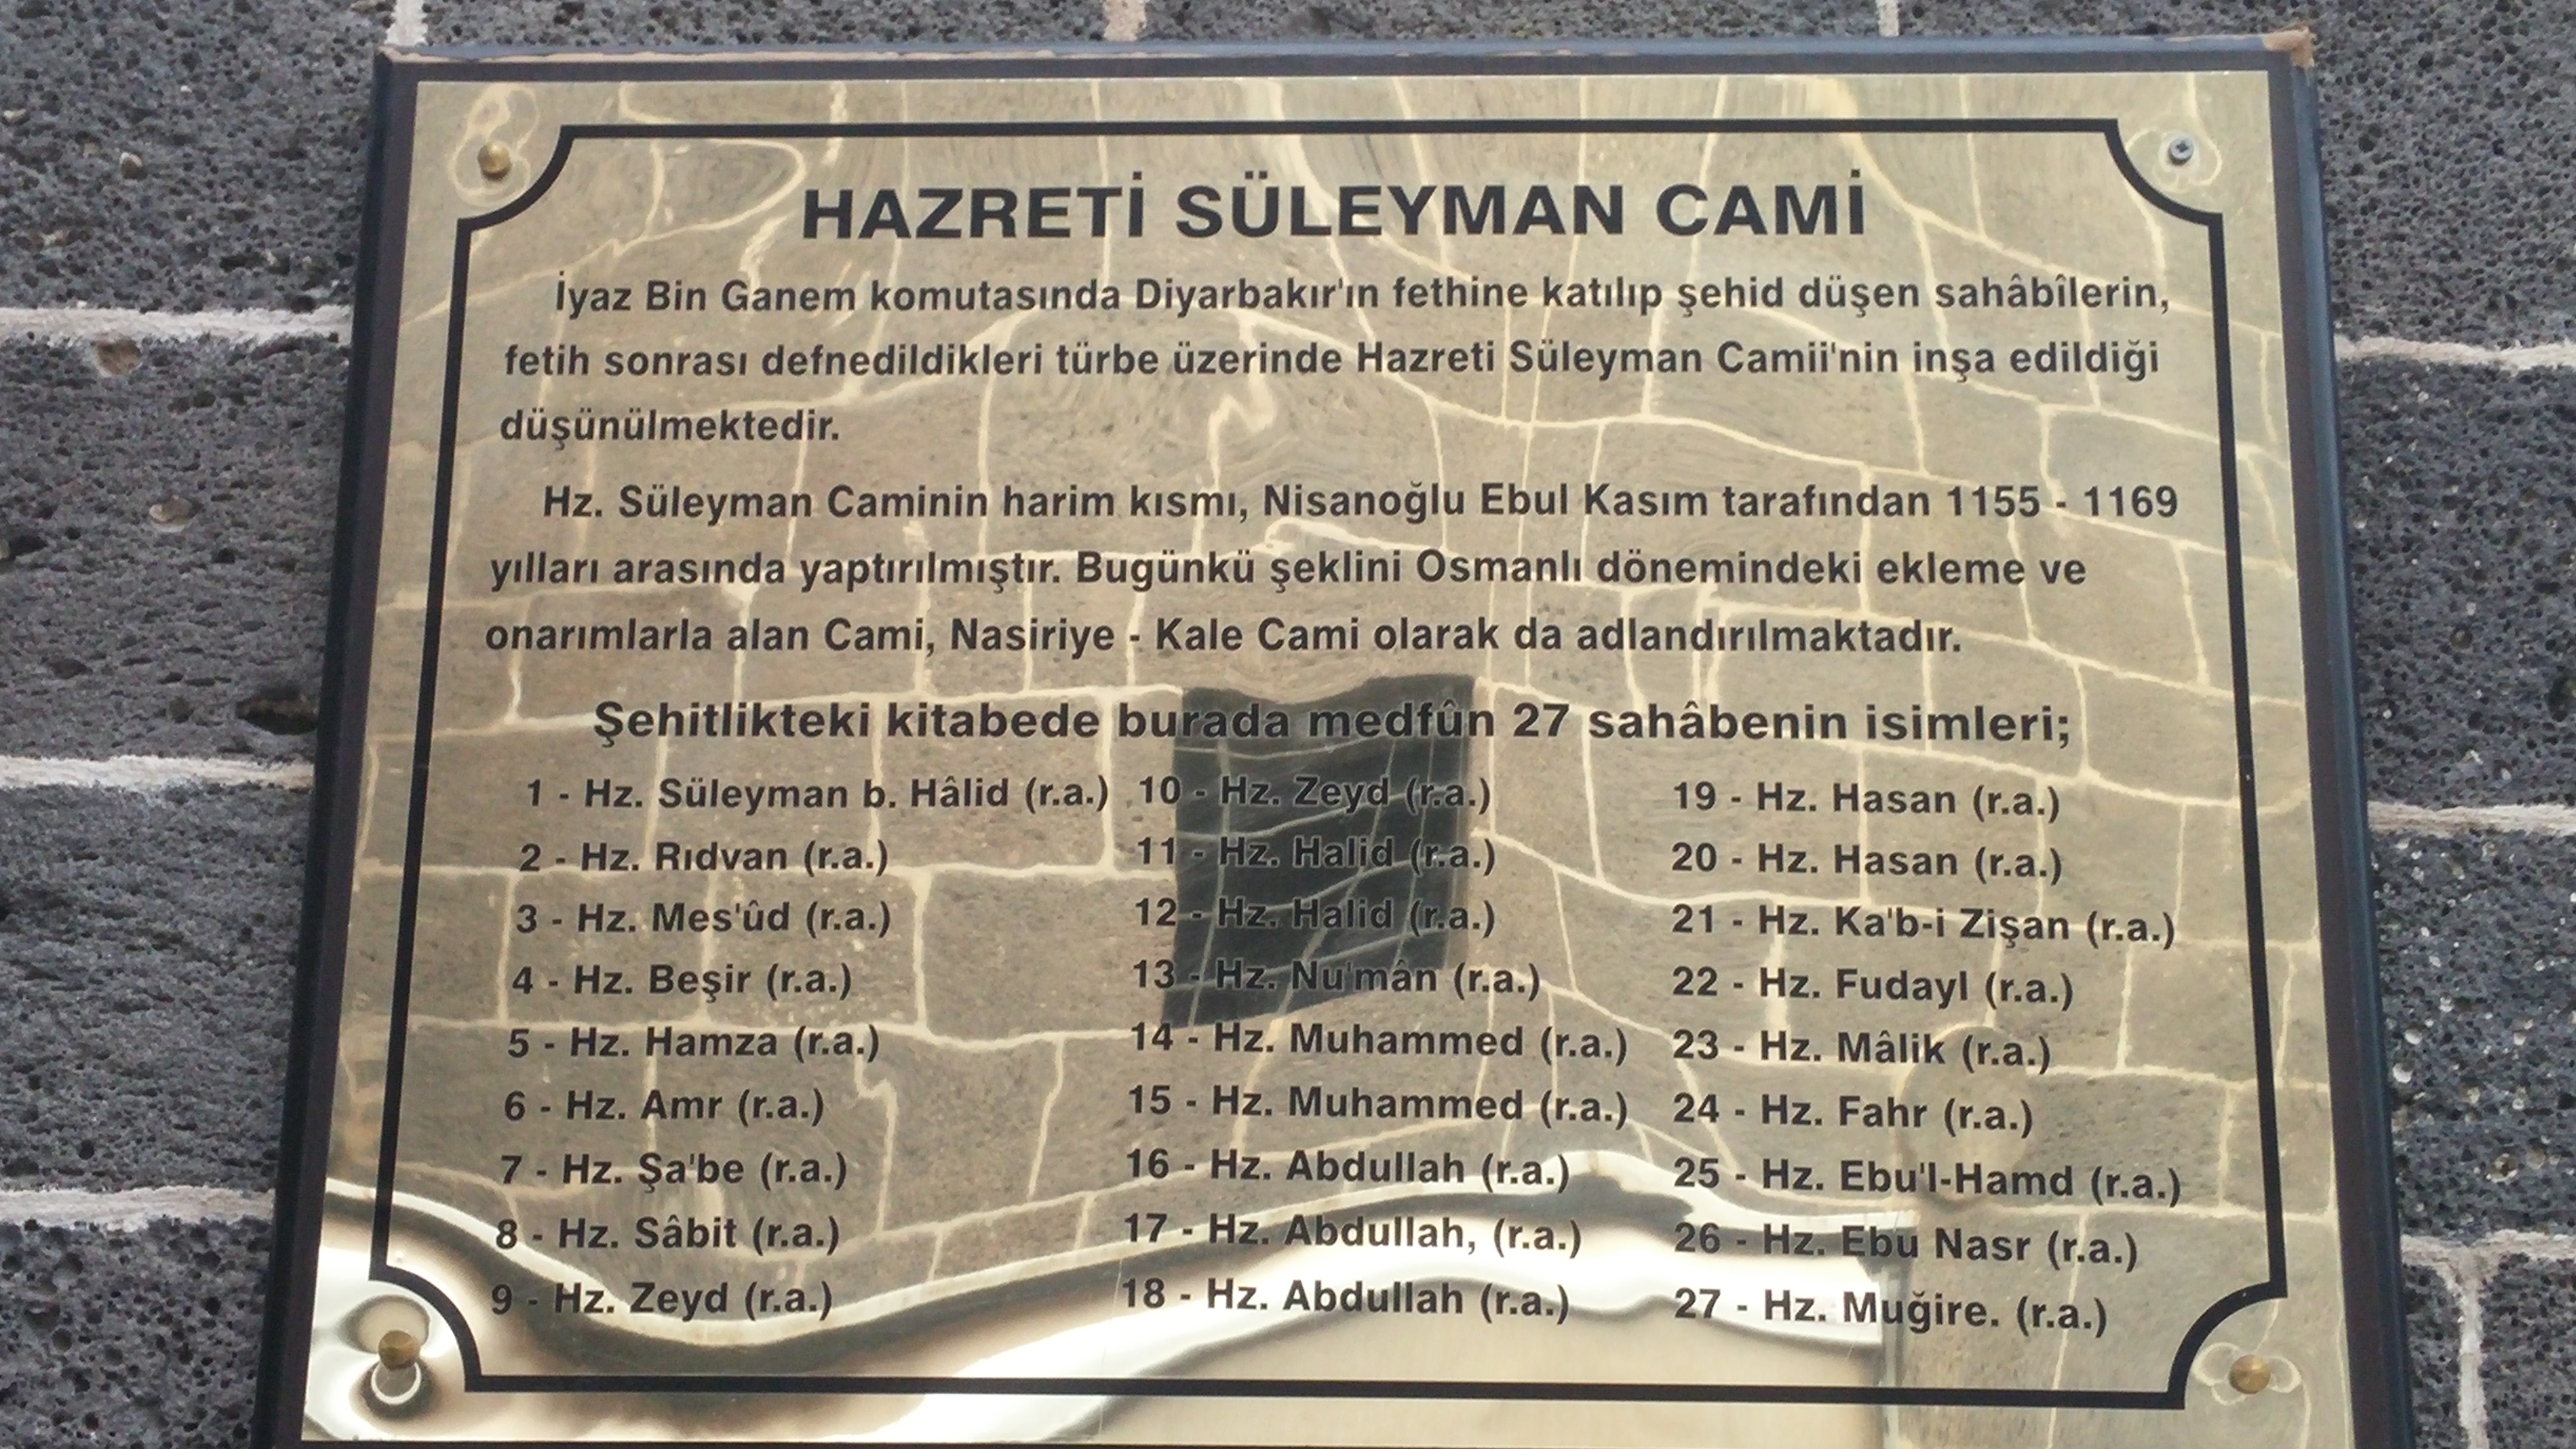 HAZRETİ SÜLEYMAN CAMİ
İyaz Bin Ganem komutasında Diyarbakır'ın fethine katılıp şehid düşen sahâbîlerin,
fetih sonrası defnedildikleri türbe üzerinde Hazreti Süleyman Camii'nin inşa edildiği
düşünülmektedir.
Hz. Süleyman Caminin harim kısmı, Nisanoğlu Ebul Kasım tarafından 1155 - 1169
yılları arasında yaptırılmıştır. Bugünkü şeklini Osmanlı dönemindeki ekleme ve
onarımlarla alan Cami, Nasiriye - Kale Cami olarak da adlandırılmaktadır.
Şehitlikteki kitabede burada medfûn 27 sahâbenin isimleri;
1 - Hz. Süleyman b. Hâlid (r.a.)
2 - Hz. Rıdvan (r.a.)
3 - Hz. Mes'ûd (r.a.)
4 - Hz. Beşir (r.a.)
5 - Hz. Hamza (r.a.)
6 - Hz. Amr (r.a.)
7 - Hz. Şa'be (r.a.)
8 - Hz. Sâbit (r.a.)
9 - Hz. Zeyd (r.a.)
10 - Hz. Zeyd (r.a.)
11 - Hz. Halid (r.a.)
12 - Hz. Halid (r.a.)
13 - Hz. Nu'mân (r.a.)
14 - Hz. Muhammed (r.a.)
15 - Hz. Muhammed (r.a.)
16 - Hz. Abdullah (r.a.)
17 - Hz. Abdullah, (r.a.)
18 - Hz. Abdullah (r.a.)
19 - Hz. Hasan (r.a.)
20 - Hz. Hasan (r.a.)
21 - Hz. Ka'b-i Zişan (r.a.)
22 - Hz. Fudayl (r.a.)
23 - Hz. Mâlik (r.a.)
24 - Hz. Fahr (r.a.)
25 - Hz. Ebu'l-Hamd (r.a.)
26 - Hz. Ebu Nasr (r.a.)
27 - Hz. Muğire. (r.a.)